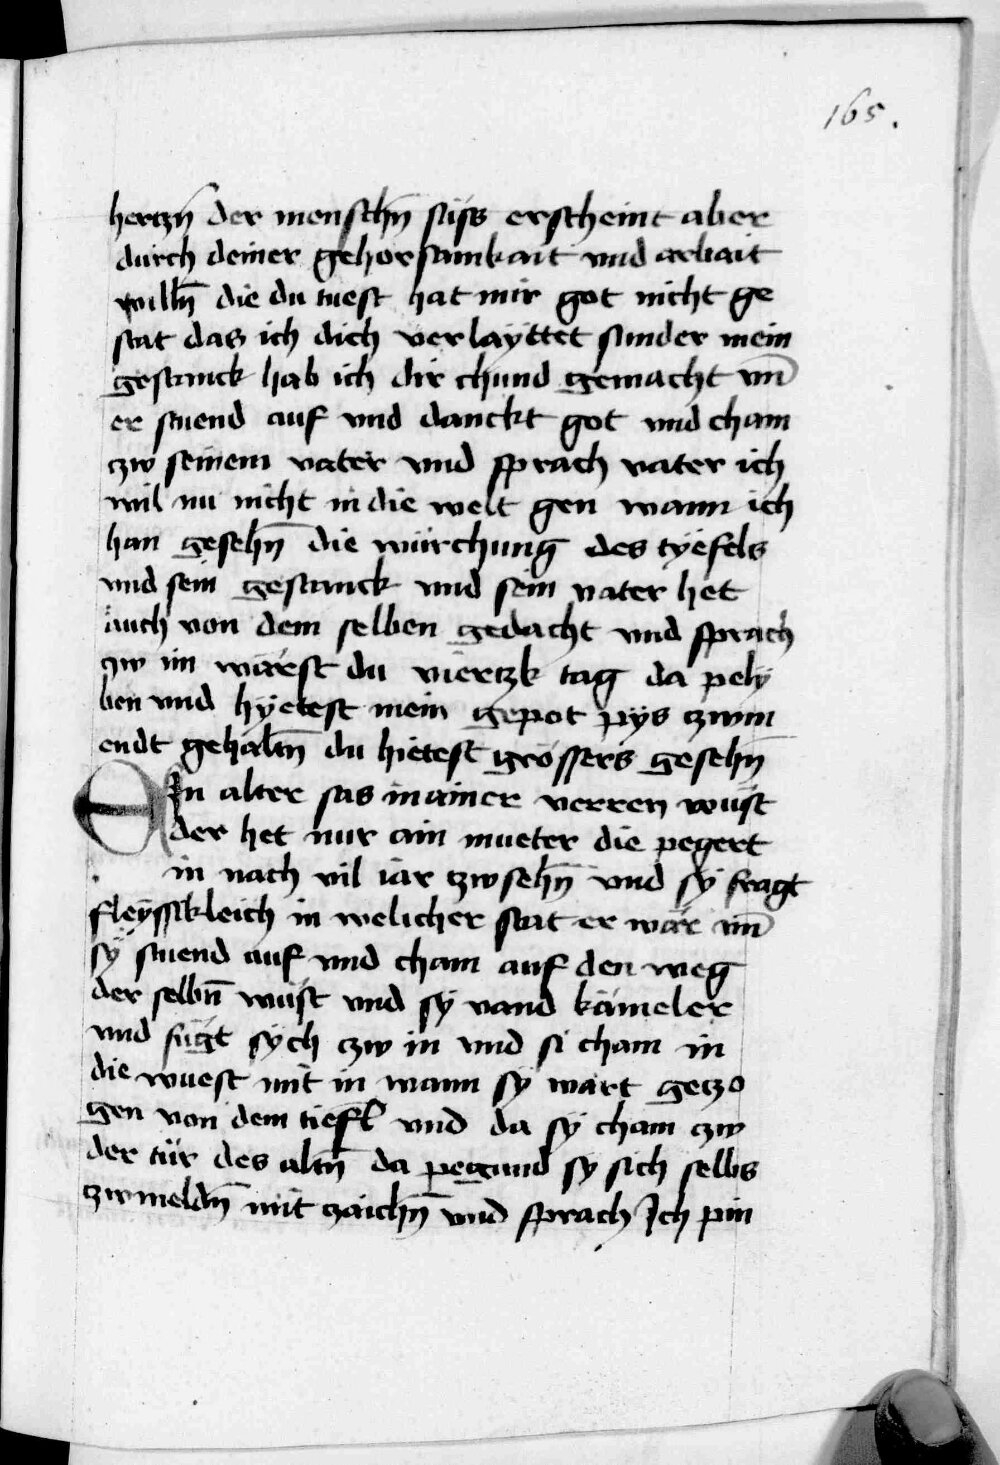 165.
hertzn̄ der menschn̄ süss erscheint aber
durch deiner gehorsamkait vnd arbait
willn̄ die du tuest hat mir got nicht ge
stat das ich dich verlayttet sunder mein
gestanck hab ich dir chund gemacht vn̄
er stuend auf vnd danckt got vnd cham
zw seinem vater vnd sprach vater ich
wil nu nicht in die welt gen wann ich
han gesehn̄ die würchung des tyefels
vnd sein gestanck vnd sein vater het
auch von dem selben gedacht vnd sprach
zw im wärst du viertzk tag da pely
ben vnd hyetest mein gepot pys zwm
endt gehaltn̄ du hietest grössers gesehn̄
Ein alter sas in ainer verren wüst
der het nur ain mueter die pegert
in nach vil iar zwsehn̄ vnd sy fragt
fleyssikleich in welicher stat er wär vn̄
sy stuend auf vnd cham auf den weg
der selbn̄ wüst vnd sy vand kämeler
vnd fügt sych zw in vnd si cham in
die wuest mit in wann sy wart getzo
gen von dem tiefl vnd da sy cham zw
der tür des altn̄ da pegund sy sich selbs
zwmeldn̄ mit zaichn̄ vnd sprach Ich pin